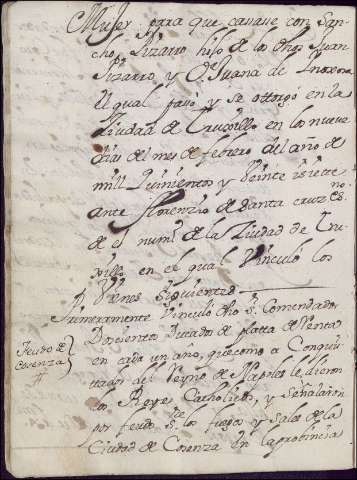 Muger, para que casase con San-
cho Pizarro hijo de los dhos Juan
Pizarro, y Dª Juana de Inoxosa
el qual pasó y se ottorgó en la
Ziudad de Truxillo en los nueve
dias del mes de febrero del año de
mill Quinientos y veinte i siette
ante florenzio de Santa cruz es.no
de el num.o de la Ziudad de Tru-
xillo en el qual Vinculó los
Vienes siguientes
Primeramente Vinculó dho S. Comendador
Doscientos Ducados de platta de Rentta
en cada un año, que como a Conquis-
ttador del Reyno de Napoles le dieron
los Reyes Catholicos, y señalaron
por feudo s.re los fuegos y sales de la
Ciudad de Cosenza en la probincia
feudo de
Cosenza